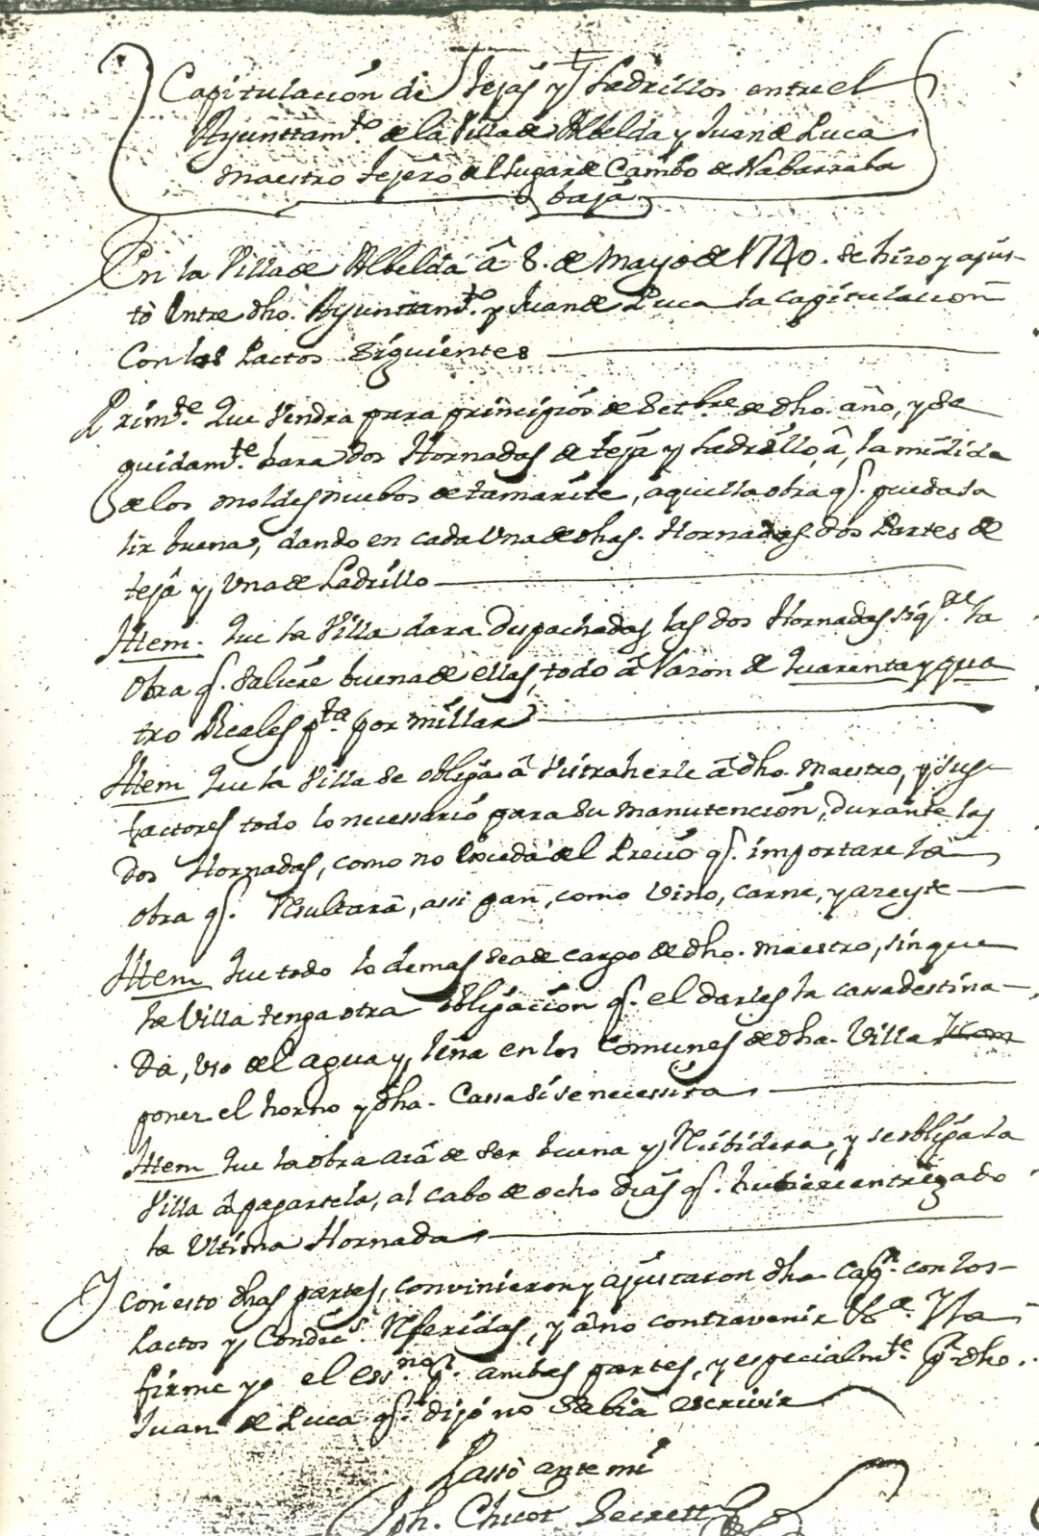 Capitulación de Tejas y Ladrillos entre el
Ayunttamto. de la Villa de Albelda y Juan de Luca
maestro tejero del lugar de Cambo de Nabarra la
baja
En la Villa de Albelda â 8. de Mayo de 1740. se hizo y ajus-
tò entre dho. Ayunttamto. y Juan de Luca la capitulacion
con los Pactos siguientes
Primte. que vendra para principios de Setbre. de dho. año, y se
guidamte. hara dos Hornadas de teja y Ladrillo, â la medida
de los moldes nuebos de tamarite, aquella obra q. pueda sa
lir buena, dando en cada una de dhas. Hornadas dos Partes de
teja y una de Ladrillo
Ittem. que la Villa dara despachadas las dos Hornadas la
obra q. saliere buena de ellas, todo â razon de quarenta y qua
tro Reales pta. por millar
Ittem que la Villa se obliga â dho. maestro, y sus
factores todo lo necessario para su manutención, durante las
dos Hornadas, como no exceda del Precio q. importare la
obra q. resultarà, assi pan, como vino, carne, y azeyte
Ittem que todo lo demas sea de cargo de dho. maestro, sin que
la Villa tenga otra obligación q. el darles la cassa destina-
da, uso del agua y leña en los comunes de dha. Villa
poner el horno y dha. Cassa si se necessita
Ittem que la obra aiâ de ser buena y recibidera, y se obliga la
Villa â pagarsela, al cabo de ocho dias q. hubiere entregado
la ultima Hornada
Y con esto dhas partes, convinieron y ajustaron dha capn. con los
Pactos y Condics. referidas, y â no contravenir Y la
firme yo el essno. pr. ambas partes, y especialmte. pr. dho.
Juan de Luca q. dijo no sabia escrivir
Passò ante mi
Jph. Chicot Secrett